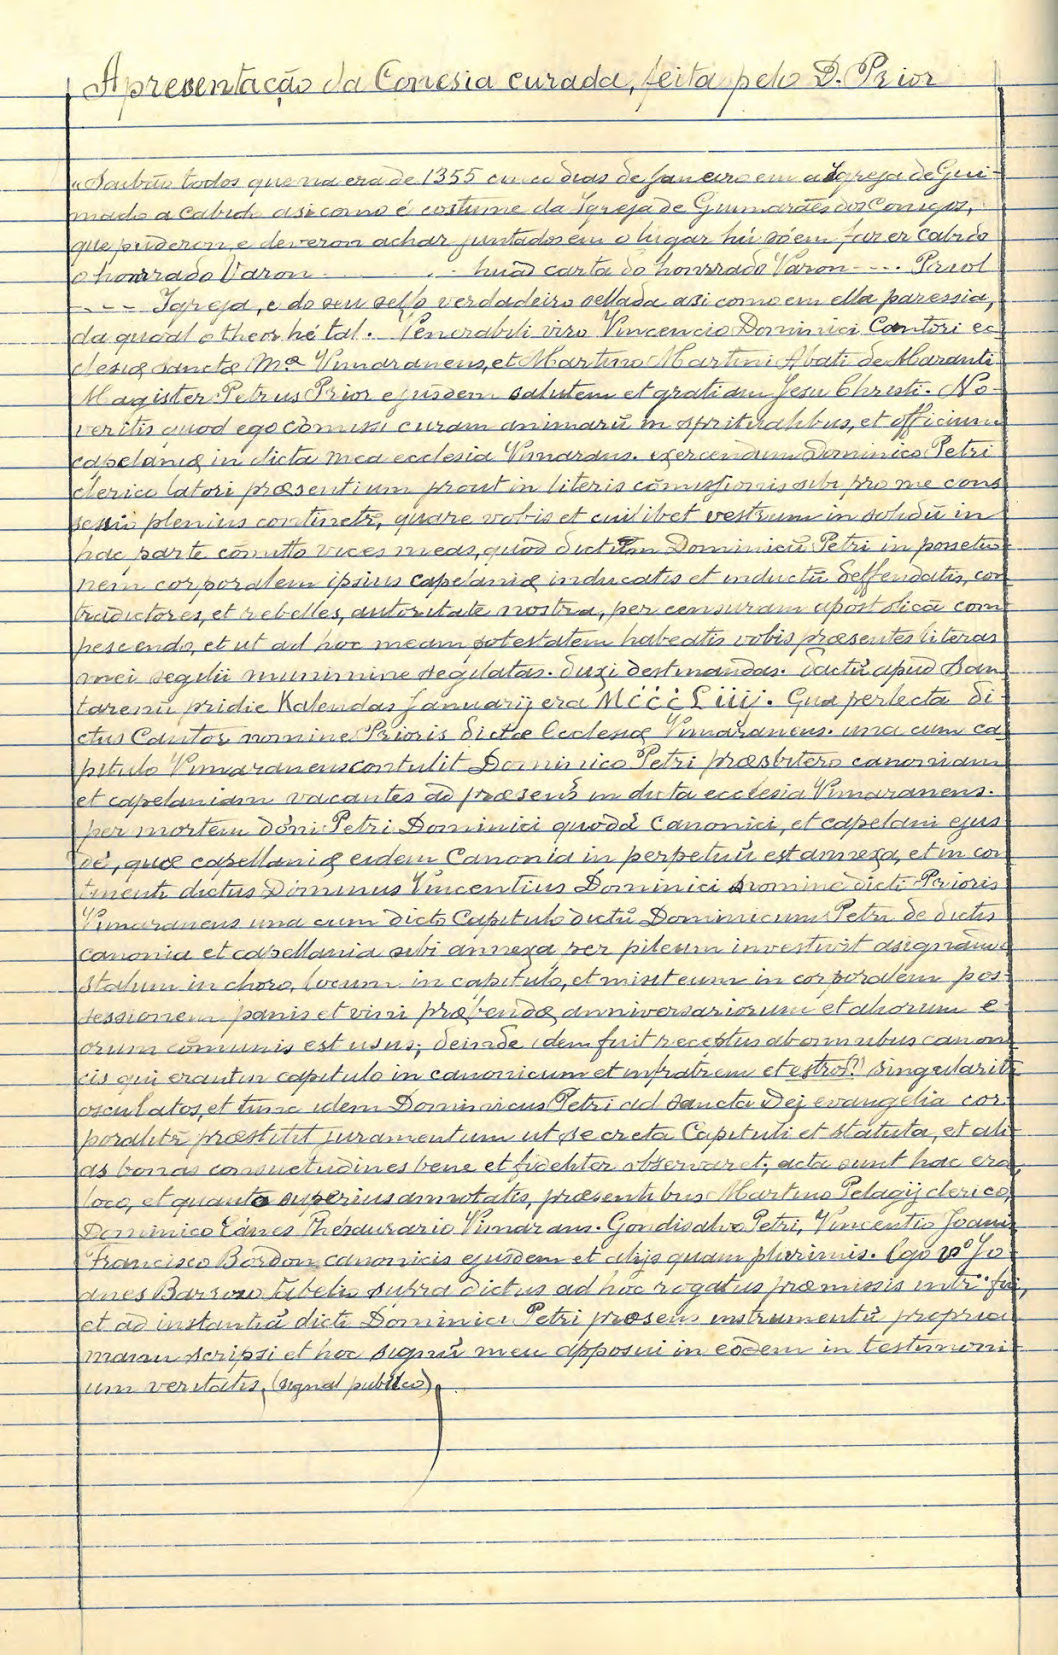 Apresentação da Conesia curada, feita pelo D. Prior
"Saibrão todos que na era de 1355 cinco dias de Janeiro em a Igreja de Gui-
mado a cabido asi como é costume da Igreja de Guimarães dos Conigos,
que puderon, e deveron achar juntados em o lugar hu sóem fazer Cabido
o honrrado Varon - - - - - huã carta do honrrado Varon - - - - Priol
- - - Igreja, e do seu sello verdadeiro sellada asi como em ella paressia,
da quoal o theor hé tal. Venerabili viro Vincencio Dominici Cantori ec-
clesiæ sanctæ Mª Vimaranens, et Martino Martini Abati de Maranti
Magister Petrus Prior ejusdem salutem et gratiam Jesu Christi. No-
veritis quod ego cõmissi curam animarũ in spritualibus, et officium
capelaniæ in dicta mea ecclesia Vimarans. exercendum Dominico Petri
clerico latori præsentium prout in literis cõmissionis sibi pro me cons
sessis plenius continetr, quare vobis et cuilibet vestrum in solidũ in
hac parte cõmitto vices meas, quod dictum Dominicũ Petri in possessio
nem corporalem ipsius capelaniæ inducatis et inductũ deffendatis, con
tradictores, et rebelles, autoritate nostra, per censuram apostolicã com
pescendo, et ut ad hoc meam potestatem habeatis vobis præsentes literas
mei segilii munimine segilatas. duxi destinandas. Dactũ apud San
tarenũ pridie Kalendas Januarij era Mċċċ Liiij. Qua perlecta di
ctus Cantor nomine Prioris dictæ Ecclesiæ Vimaranens. una cum ca
pitulo Vimaranens contulit Dominico Petri præsbitero canoniam
et capelaniam vacantes ad præsens in dicta ecclesia Vimaranens.
per mortem dõni Petri Dominici quodã Canonici, et capelani ejus
dẽ, quæ capellaniæ eidem Canonia in perpetuũ est annexa, et in con
tinenti dictus Dominus Vincentius Dominici nomine dicti Prioris
Vimaranens una cum dicto Capitulo dictũ Dominicum Petri de dictis
canonia et capellania sibi annexa per pileum investivit asignando
stalum in choro, locum in capitulo, et misit eum in corporalem pos-
sessionem panis et vini præbendæ, anniversariorum et aliorum e-
orum cõmunis est usus; deinde idem fuit receptus ab omnibus canoni
cis qui erant in capitulo in canonicum et infratrem et estros(?) singularitr
osculatos, et tunc idem Dominicus Petri ad sancta Dej evangelia cor-
poralitr præstitit juramentum ut secreta Capituli et statuta, et ali
as bonas consuetudines bene et fideliter observaret; acta sunt hac era,
loco, et quanto superius annotatis, præsentibus Martino Pelagij clerico,
Dominico Eanes Thesaurario Vimarans. Gondisalvo Petri, Vincentio Joanis
Francisco Bordon canonicis ejusdem et alijs quam plurimis. Ego vº Jo
anes Barroso tabelio supra dictus ad hoc rogatus præmissis intr. fui,
et ad instantiã dicti Dominici Petri præsens instrumentũ propria
manu scripsi et hoc signũ meu apposui in eodem in testimoni-
um veritatis, (signal publico)